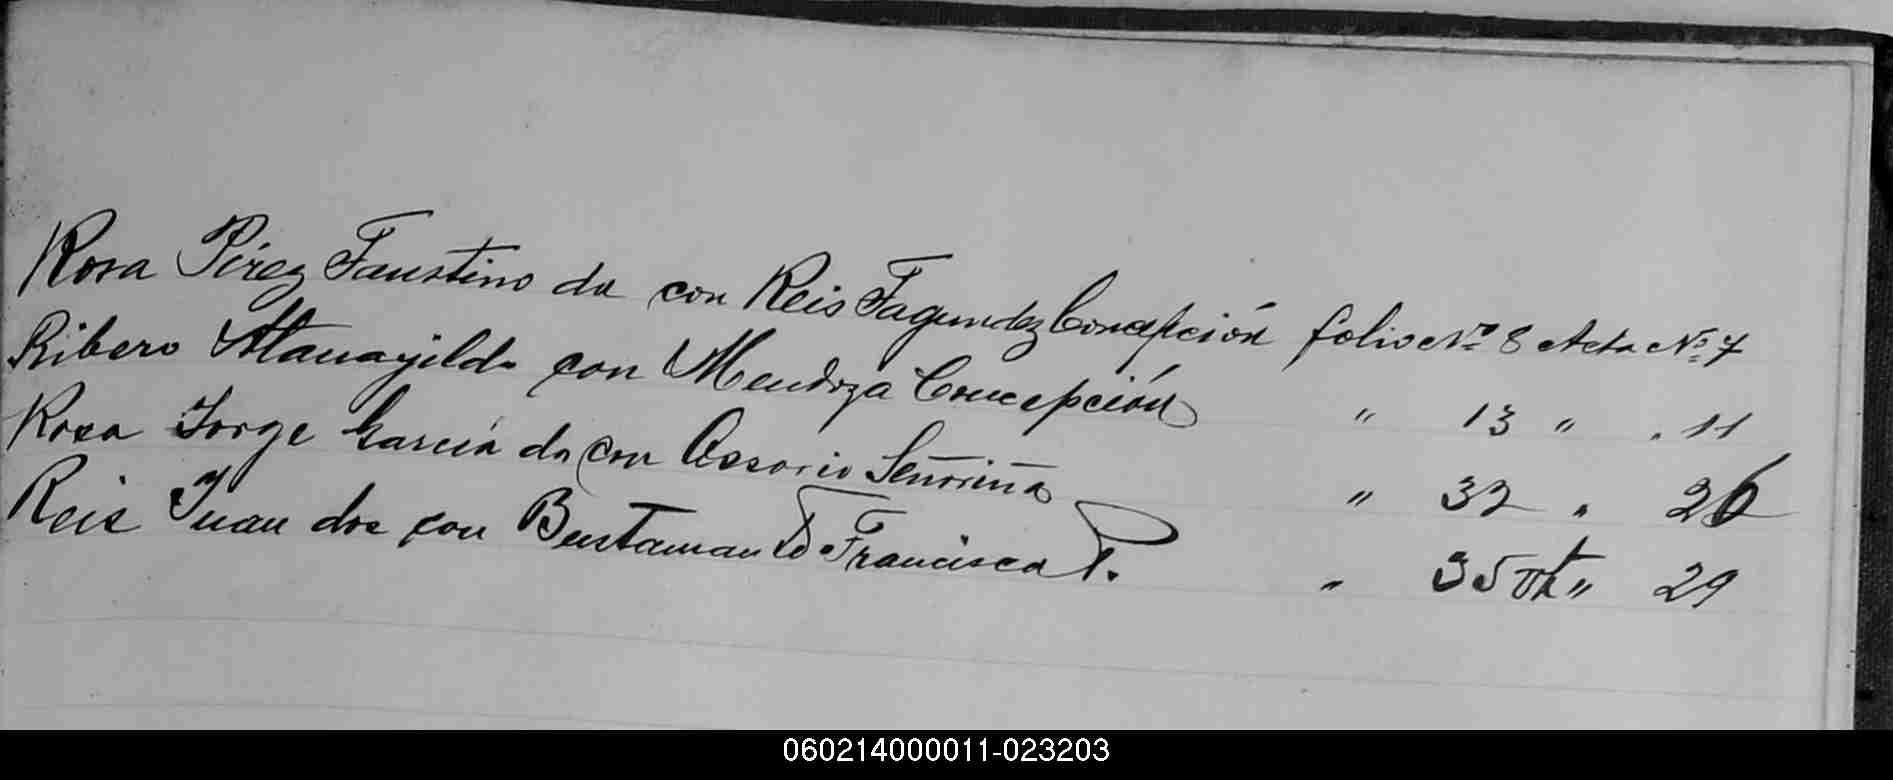 Rosa Pérez Faustino da con Reis Fagundez Concepción folio Nº 8 Acta Nº 7
Ribero Atanagildo con Mendoza Concepción " 13 " " 11
Rosa Jorge García da con Ossorio Señoriña " 32 " 26
Reis Juan dos con Bustamante Francisca P. " 35 " 29
060214000011-023203